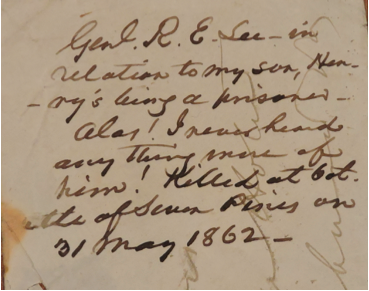 Genl. R. E. Lee - in
relation to my son, Hen-
-ry's being a prisoner -
Alas! I never heard
any thing more of
him! Killed at bat.
ttle of Seven Pines on
31 May 1862 -